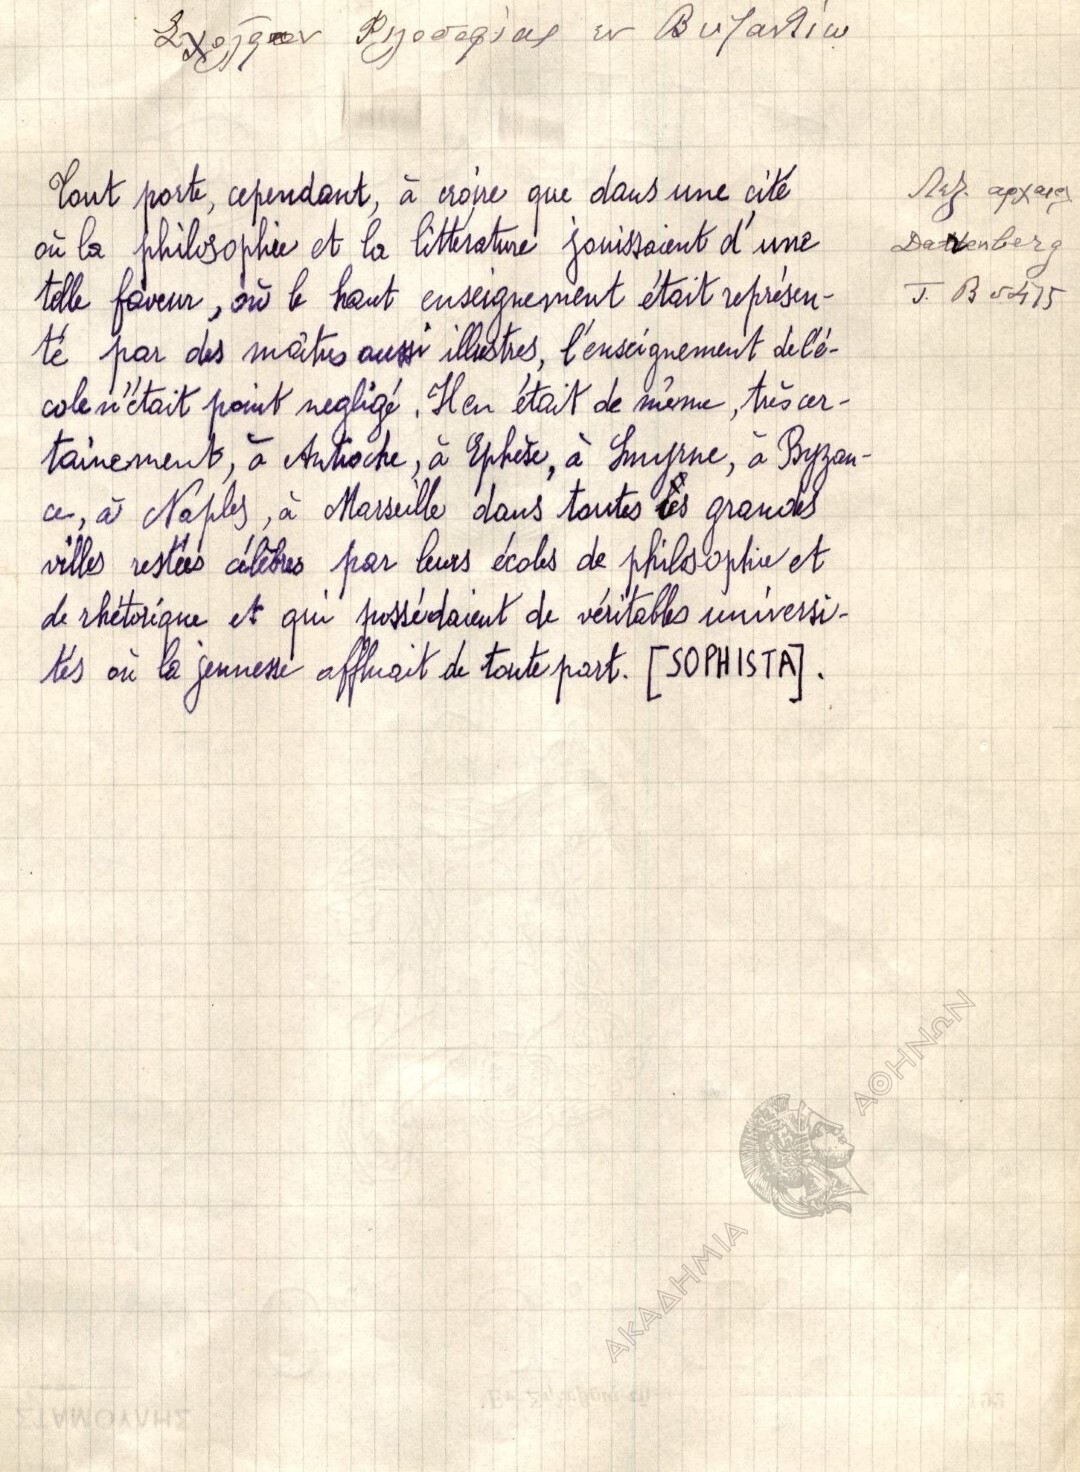 Σχολείον Φιλοσοφίας εν Βυζαντίω
Tout porte, cependant, à croire que dans une cité
où la philosophie et la littérature jouissaient d'une
telle faveur, où le haut enseignement était représen-
té par des maîtres aussi illustres, l'enseignement de l'é-
cole n'était point negligé. Il en était de même, très cer-
tainement, à Antioche, à Ephèse, à Smyrne, à Byzan-
ce, à Naples, à Marseille dans toutes les grandes
villes restées célèbres par leurs écoles de philosophie et
de rhétorique et qui possédaient de véritables universi-
tés où la jeunesse affluait de toute part. [SOPHISTA].
Λεξ. αρχαιο
Daremberg
T. B
ΑΚΑΔΗΜΙΑ ΑΘΗΝΩΝ
ΣΤΑΜΟΥΛΗΣ